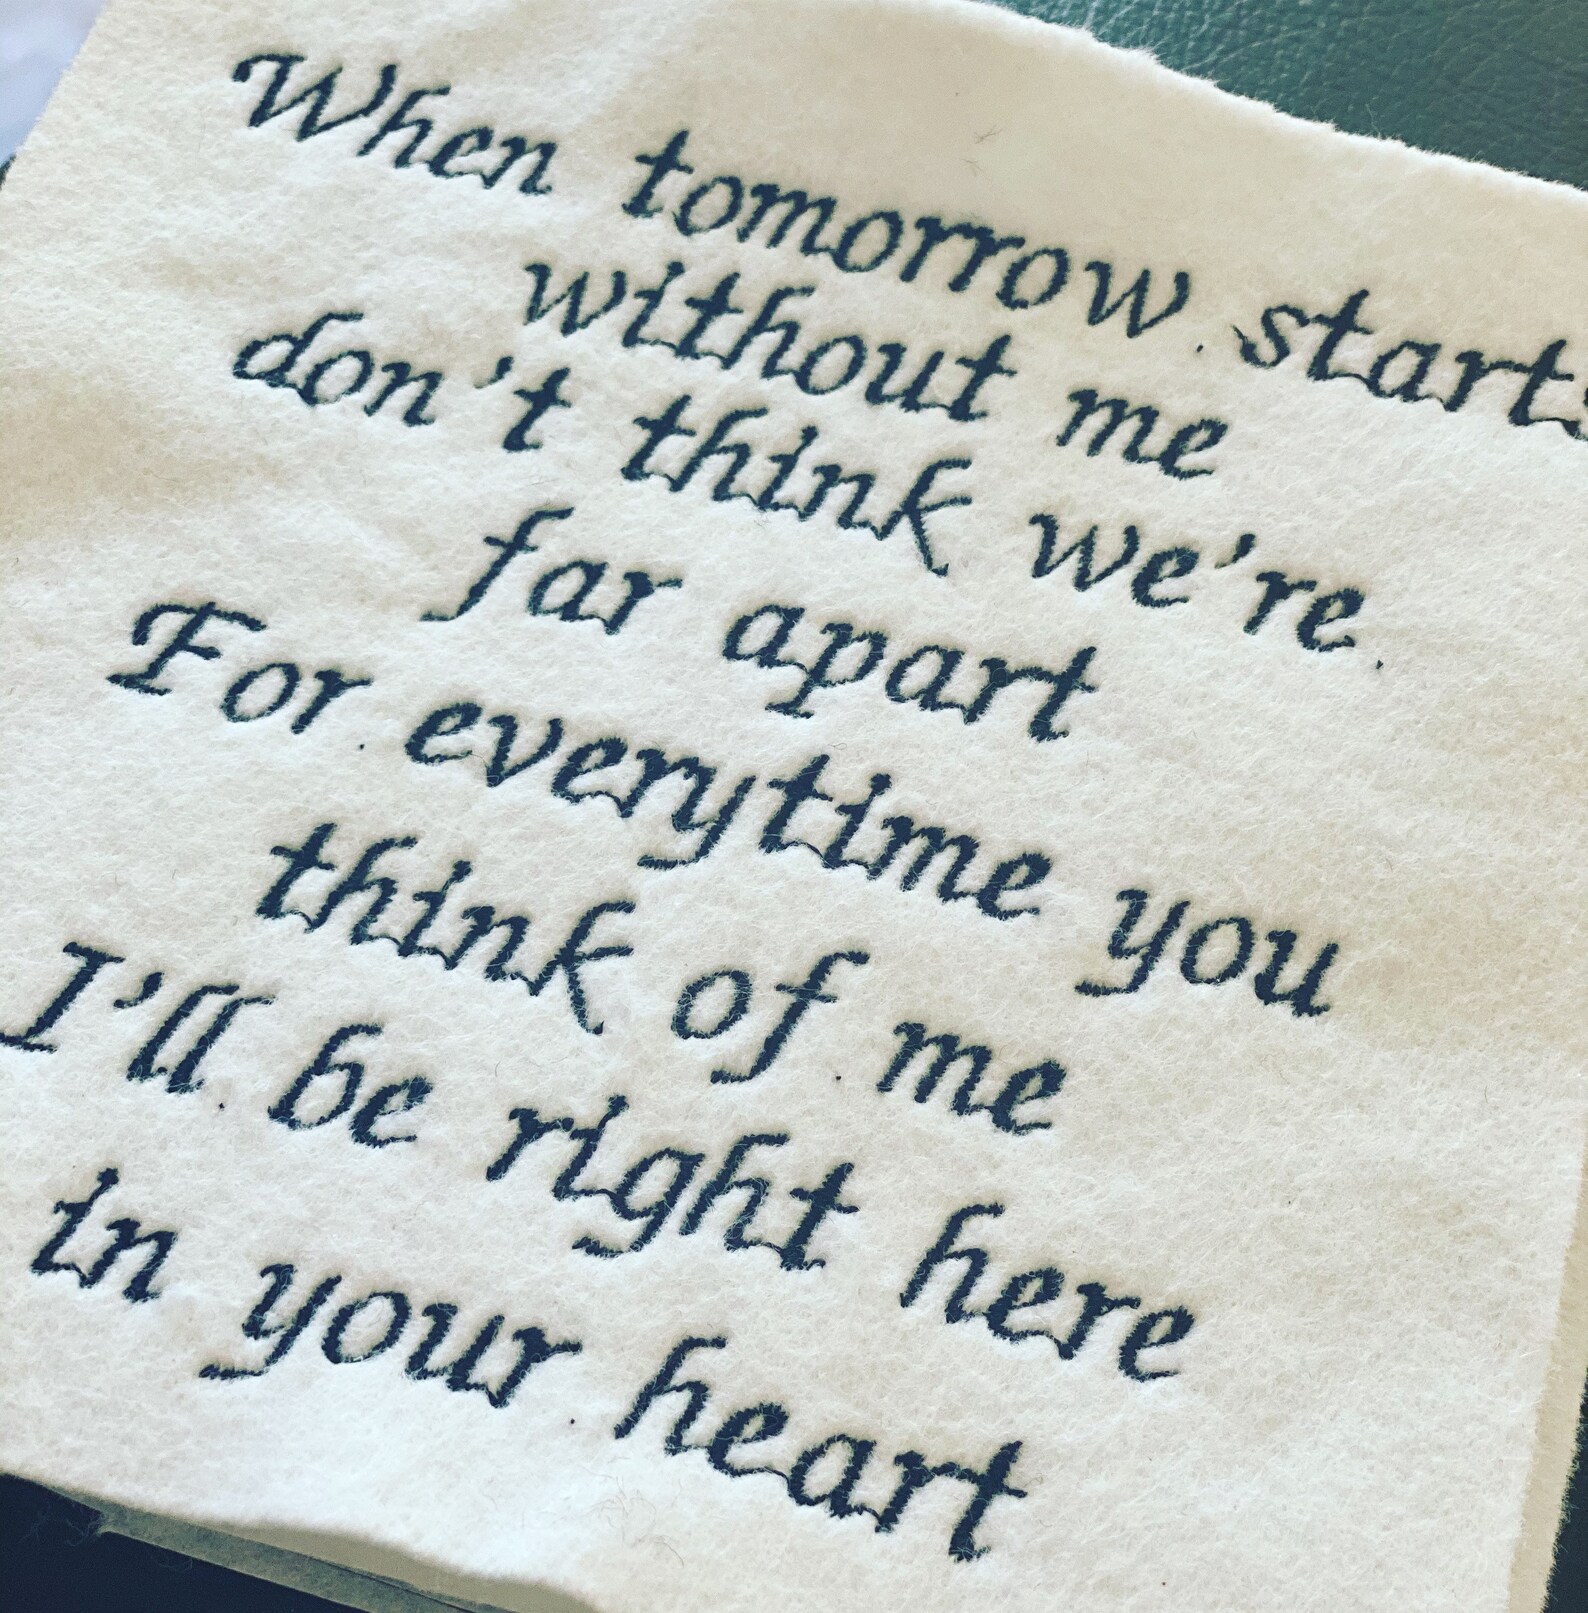 When tomorrow starts
without me
don't think we're
far apart
For everytime you
think of me
I'll be right here
in your heart